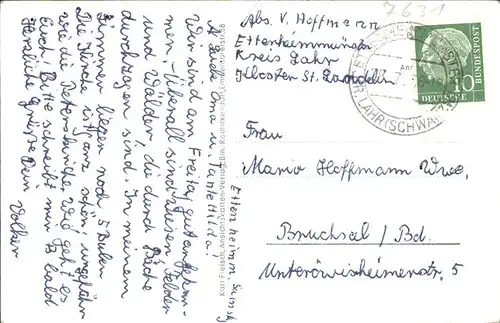 7631
Abs. V. Hoffmann
Ettenheimmünster
Kreis Lahr
Kloster St. Landelin
LAHR (SCHWA
10
DEUTSCHE
BUNDESPOST
Frau
Maria Hoffmann Wwe.
Bruchsal / Bd.
Unteröwisheimerstr. 5
Ettenheimm. Samstg
Liebe Oma u. Tante Hilda!
Wir sind am Freitag gut angekom-
men. Überall sind Wiesen, Felder
und Wälder, die durch Bäche
durchzogen sind. In meinem
Zimmer liegen noch 5 Buben.
Die Kirche ist ganz schön, ungefähr
wie die Peterskirche. Wie geht es
Euch? Bitte schreibt mir bald
Herzliche Grüße Dein
Volker
Karl Fleisch, Ansichtskarten-Verlag, Bln.